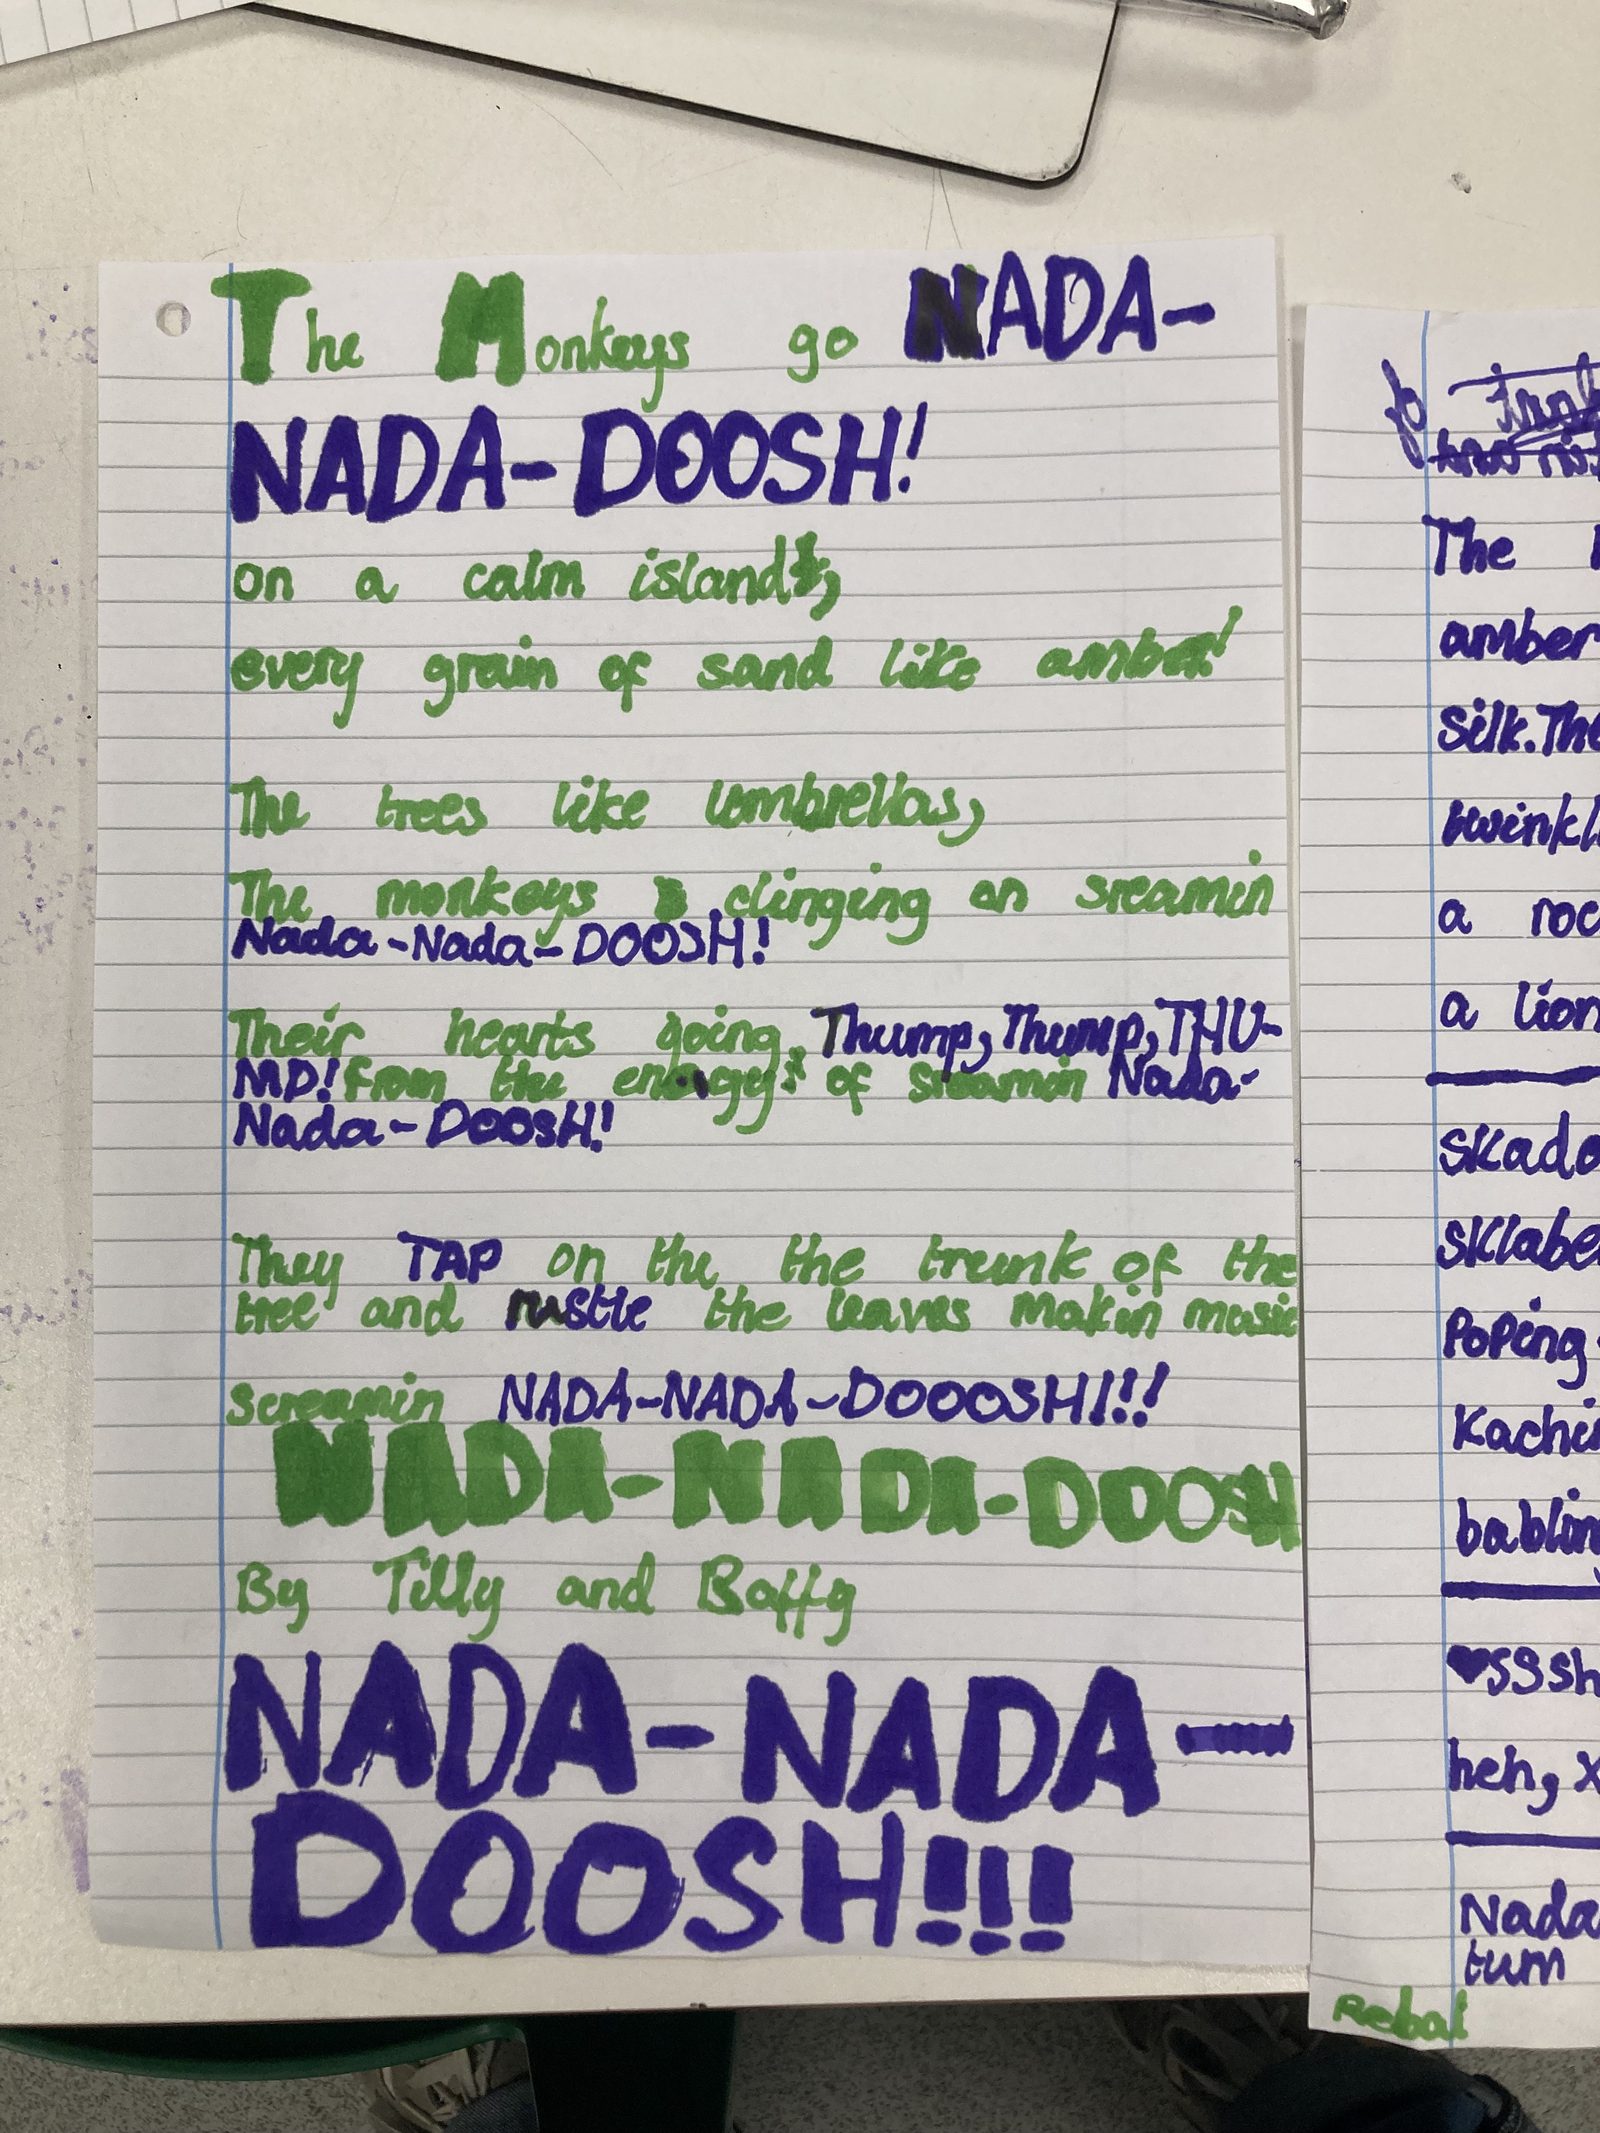 The Monkeys go NADA-
NADA-DOOSH!
on a calm island,
every grain of sand like amber!
The trees like umbrellas,
The monkeys clinging on sreamin
Nada-Nada-DOOSH!
Their hearts going Thump, Thump, THU-
MP! from the energy of sreamin Nada-
Nada-DOOSH!
They TAP on the the trunk of the
tree and rustle the leaves makin music
Screamin NADA-NADA-DOOOSH!!!
NADA-NADA-DOOSH
By Tilly and Baffy
NADA-NADA-
DOOSH!!!
The
amber
Silk. The
twinkl
a roc
a lion
skado
sklabe
Poping
Kachi
bablin
♥SSsh
heh, x
Nada
tum
Rebal